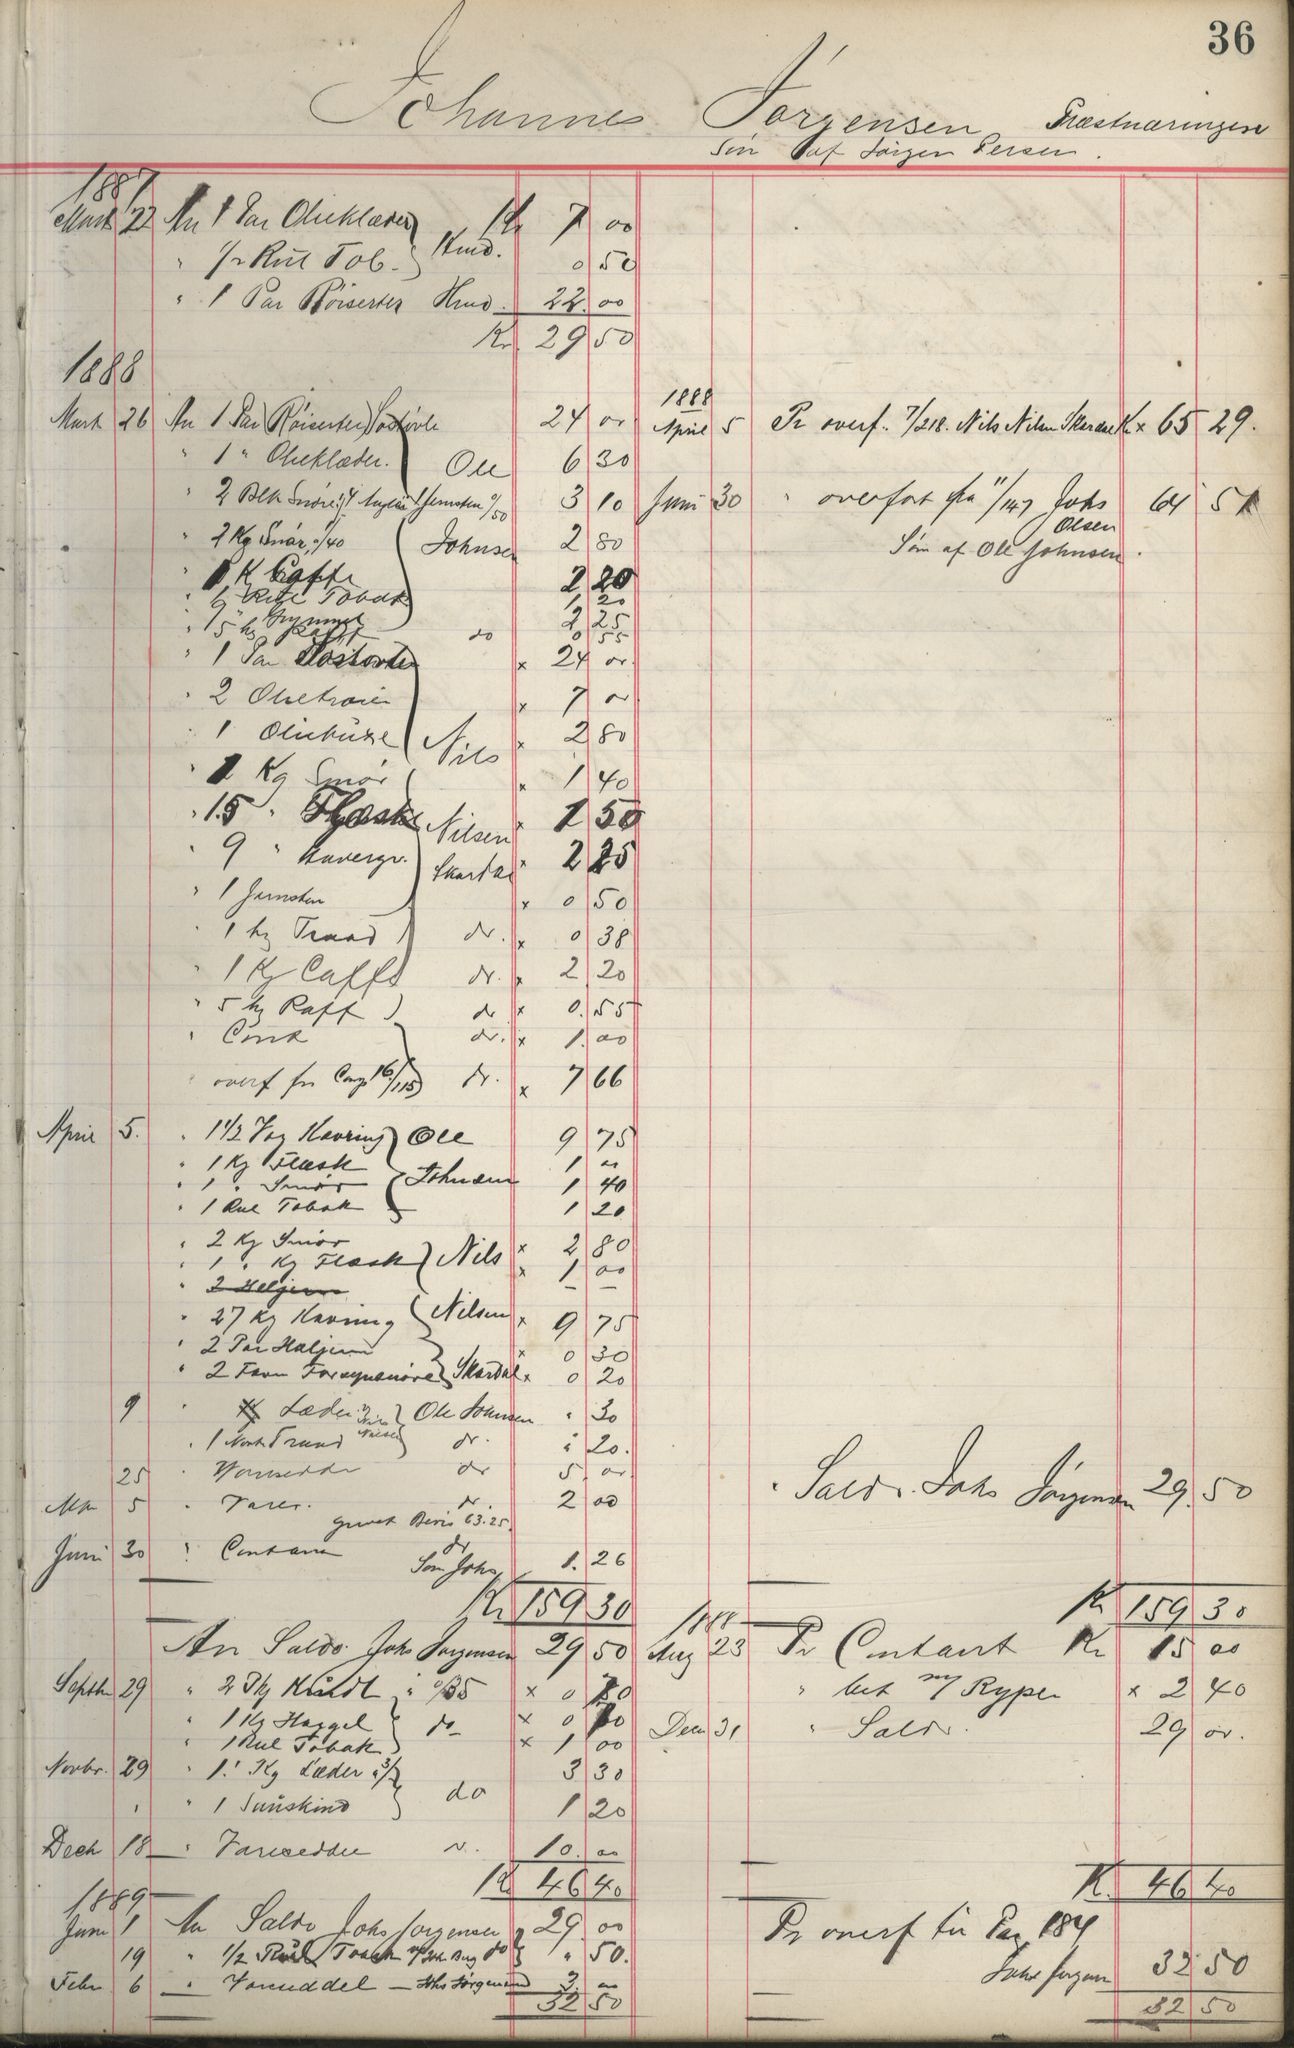 36
Johannes Jørgensen Præstnæringen
Søn af Jørgen Persen.
1887
Marts 22 An 1 Par Olieklæder Kr 7 00
" 1/2 Rul Tob. Hmd. 0 50
" 1 Par Røiserter Hmd. 22.00
Kr 29 50
1888
Marts 26 An 1 Par Røiserter Søstøvle 24 00
" 1 " Olieklæder. Ole 6 30
" 2 Blk Snøre 1 Jernsten 0/50 3 10
" 2 Kg Smør 1/40 Johnsen 2 80
" 1 K Caffe 2 20
" Rul Tobak 1 20
" 9 " Grynmel 2 25
" 5 hg Raff do 0 55
" 1 Par Søstøvler x 24 00
" 2 Olietrøier x 7 00
" 1 Oliebuxe Nils x 2 80
" 1 Kg Smør x 1 40
" 1.5 " Flæsk Nilsen x 1 50
" 9 " Havregr. Skardal x 2 25
" 1 Jernsten x 0 50
" 1 hg Traad dr. x 0 38
" 1 Kg Caffe dr. x 2 20
" 5 hg Raff dr x 0.55
" Cont dr. x 1.00
overf fra 16/115 dr. x 7 66
April 5. " 1 1/2 Vog Kavring Ole 9 75
" 1 Kg Flæsk 1 00
" 1 " Smør Johnsen 1 40
" 1 Rul Tobak 1 20
" 2 Kg Smør x 2 80
" 1 " Kg Flæsk Nils x 1 00
" 2 Heljern — —
" 27 Kg Kavring Nilsen x 9 75
" 2 Par Hæljern x 0 30
" 2 Favn Forsynsnøre Skardal x 0 20
9 " Læder Nils Nilsen Ole Johnsen " 30
" 1 Traad dr. " 20.
25 " Vareseddel dr 5 00
Mai 5 " Varer. dr. 2 00
Bevis 63.25.
Juni 30 " Contant dr Søn Johs 1.26
Kr 159 30
An Saldo Johs Jørgensen 29 50
Septbr 29 " 2 a/35 x 0 70
" 1 Kg Haggel do x 0
" 1 Rul Tobak x 1 00
Novbr. 29 " 1. Kg Læder a 3/ 3 30
" " 1 Suuskind do 1 20
Decb 18 " Vareseddel 10.00
Kr 46 40
1889
Janr 1 An Saldo Johs Jørgensen 29.00
19 " 1/2 Rul Toback do " 50.
Febr 6 " Vareseddel — Johs Jørgensen 3.00
32 50
1888
April 5 Pr overf. 7/218. Nils Nilsen Skardal Kr 65 29.
Juni 30 " overført fra 11/147 Johs Olsen 64 51
Søn af Ole Johnsen.
" Saldo. Johs Jørgensen 29.50
Kr 159 30
1888
Aug 23 Pr Contant Kr 15 00
" Ryper x 2 40
Decr 31 " Saldo. 29 00.
K. 46 40
Pr overf til Pag 184
Johs Jørgen 32 50
32 50